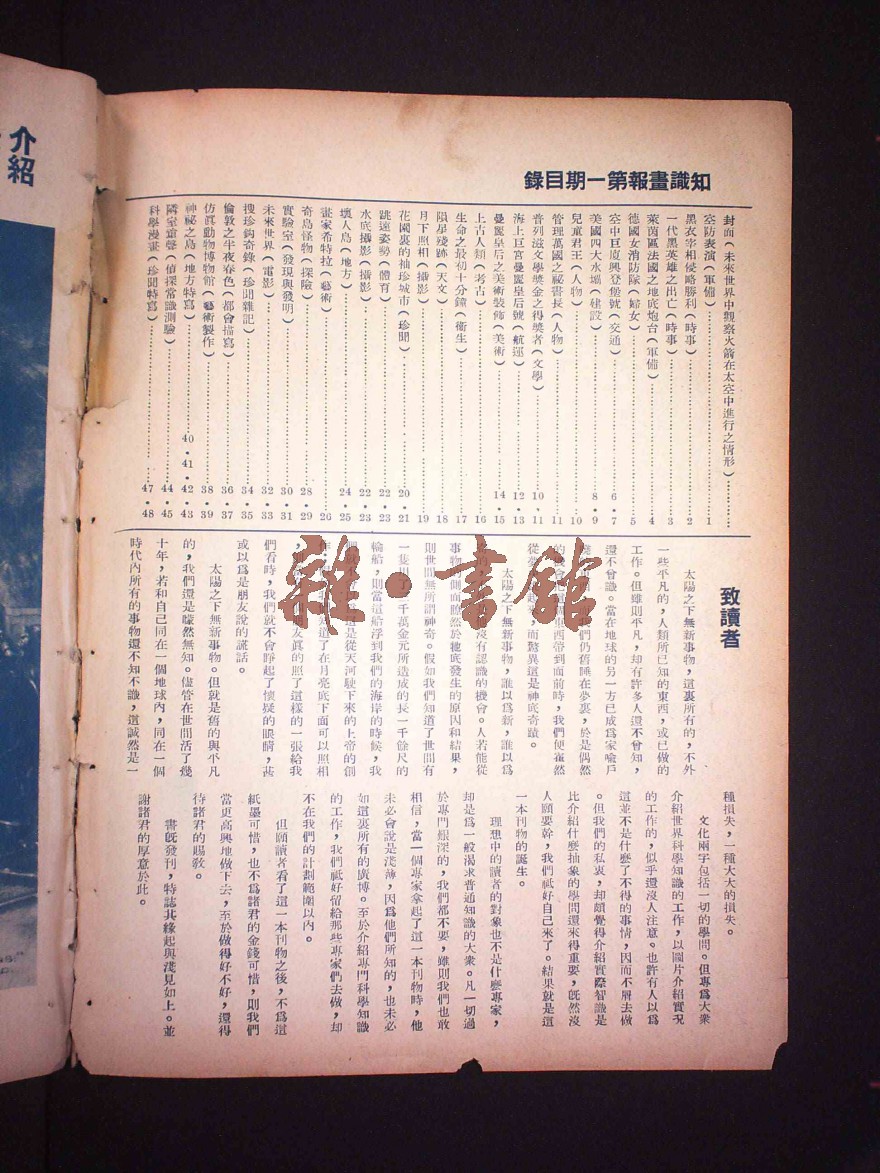 介紹
知識畫報第一期目錄
封面(未來世界中觀察火箭在太空中進行之情形)
空防表演(軍備) 1
黑衣宰相侵略勝利(時事) 2
一代黑英雄之出亡(時事) 3
萊茵區法國之地底炮台(軍備) 4
德國女消防隊(婦女) 5
空中巨廈興登堡號(交通) 6・7
美國四大水壩(建設) 8・9
兒童君王(人物) 10
管理萬國之祕書長(人物) 11
普列滋文學獎金之得獎者(文學) 10・11
海上巨宮曼麗皇后號(航運) 12・13
曼麗皇后之美術裝飾(美術) 14・15
上古人類(考古) 16
生命之最初十分鐘(衞生) 17
隕星殘跡(天文) 18
月下照相(攝影) 19
花園裏的袖珍城市(珍聞) 20・21
跳遠姿勢(體育) 22・23
水底攝影(攝影) 22・23
壞人島(地方) 24・25
畫家希特拉(藝術) 26
奇島怪物(探險) 28・29
實驗室(發現與發明) 30・31
未來世界(電影) 32・33
搜珍鈎奇錄(珍聞雜記) 34・35
倫敦之半夜春色(都會描寫) 36・37
仿眞動物博物館(藝術製作) 38・39
神祕之島(地方特寫) 40・41・42・43
隣室重聲(偵探常識測驗) 44・45
科學漫畫(珍聞特寫) 47・48
致讀者
太陽之下無新事物,這裏所有的,不外
一些平凡的,人類所已知的東西,或已做的
工作。但雖則平凡,却有許多人還不曾知,
還不曾識。當在地球的另一方已成爲家喩戶
我們仍舊睡在夢裏,於是偶然
東西帶到面前時,我們便霍然
從夢 而驚異這是神底奇蹟。
太陽之下無新事物,誰以爲新,誰以爲
沒有認識的機會。人若能從
事物的側面瞭然於牠底發生的原因和結果,
則世間無所謂神奇。假如我們知道了世間有
一隻用了 千萬金元所造成的長一千餘尺的
輪船,則當這船浮到我們的海岸的時候,我
是從天河駛下來的上帝的創
知道了在月亮底下面可以照相
友眞的照了這樣的一張給我
們看時,我們就不會睜起了懷疑的眼睛,甚
或以爲是朋友說的謊話。
太陽之下無新事物。但就是舊的與平凡
的,我們還是矇然無知。儘管在世間活了幾
十年,若和自己同在一個地球內,同在一個
時代內所有的事物還不知不識,這誠然是一
種損失,一種大大的損失。
文化兩字包括一切的學問。但專爲大衆
介紹世界科學知識的工作,以圖片介紹實況
的工作的,似乎還沒人注意。也許有人以爲
這並不是什麼了不得的事情,因而不屑去做
。但我們的私衷,却頗覺得介紹實際智識是
比介紹什麼抽象的學問還來得重要,旣然沒
人願要幹,我們祗好自己來了。結果就是這
一本刊物的誕生。
理想中的讀者的對象也不是什麼專家,
却是爲一般渴求普通知識的大衆。凡一切過
於專門艱深的,我們都不要,雖則我們也敢
相信,當一個專家拿起了這一本刊物時,他
未必會說是淺薄,因爲他們所知的,也未必
如這裏所有的廣博。至於介紹專門科學知識
的工作,我們祗好留給那些專家們去做,却
不在我們的計劃範圍以內。
但願讀者看了這一本刊物之後,不爲這
紙墨可惜,也不爲諸君的金錢可惜,則我們
當更高興地做下去,至於做得好不好,還得
待諸君的賜敎。
書旣發刊,特誌其緣起與淺見如上。並
謝諸君的厚意於此。
雜・書館